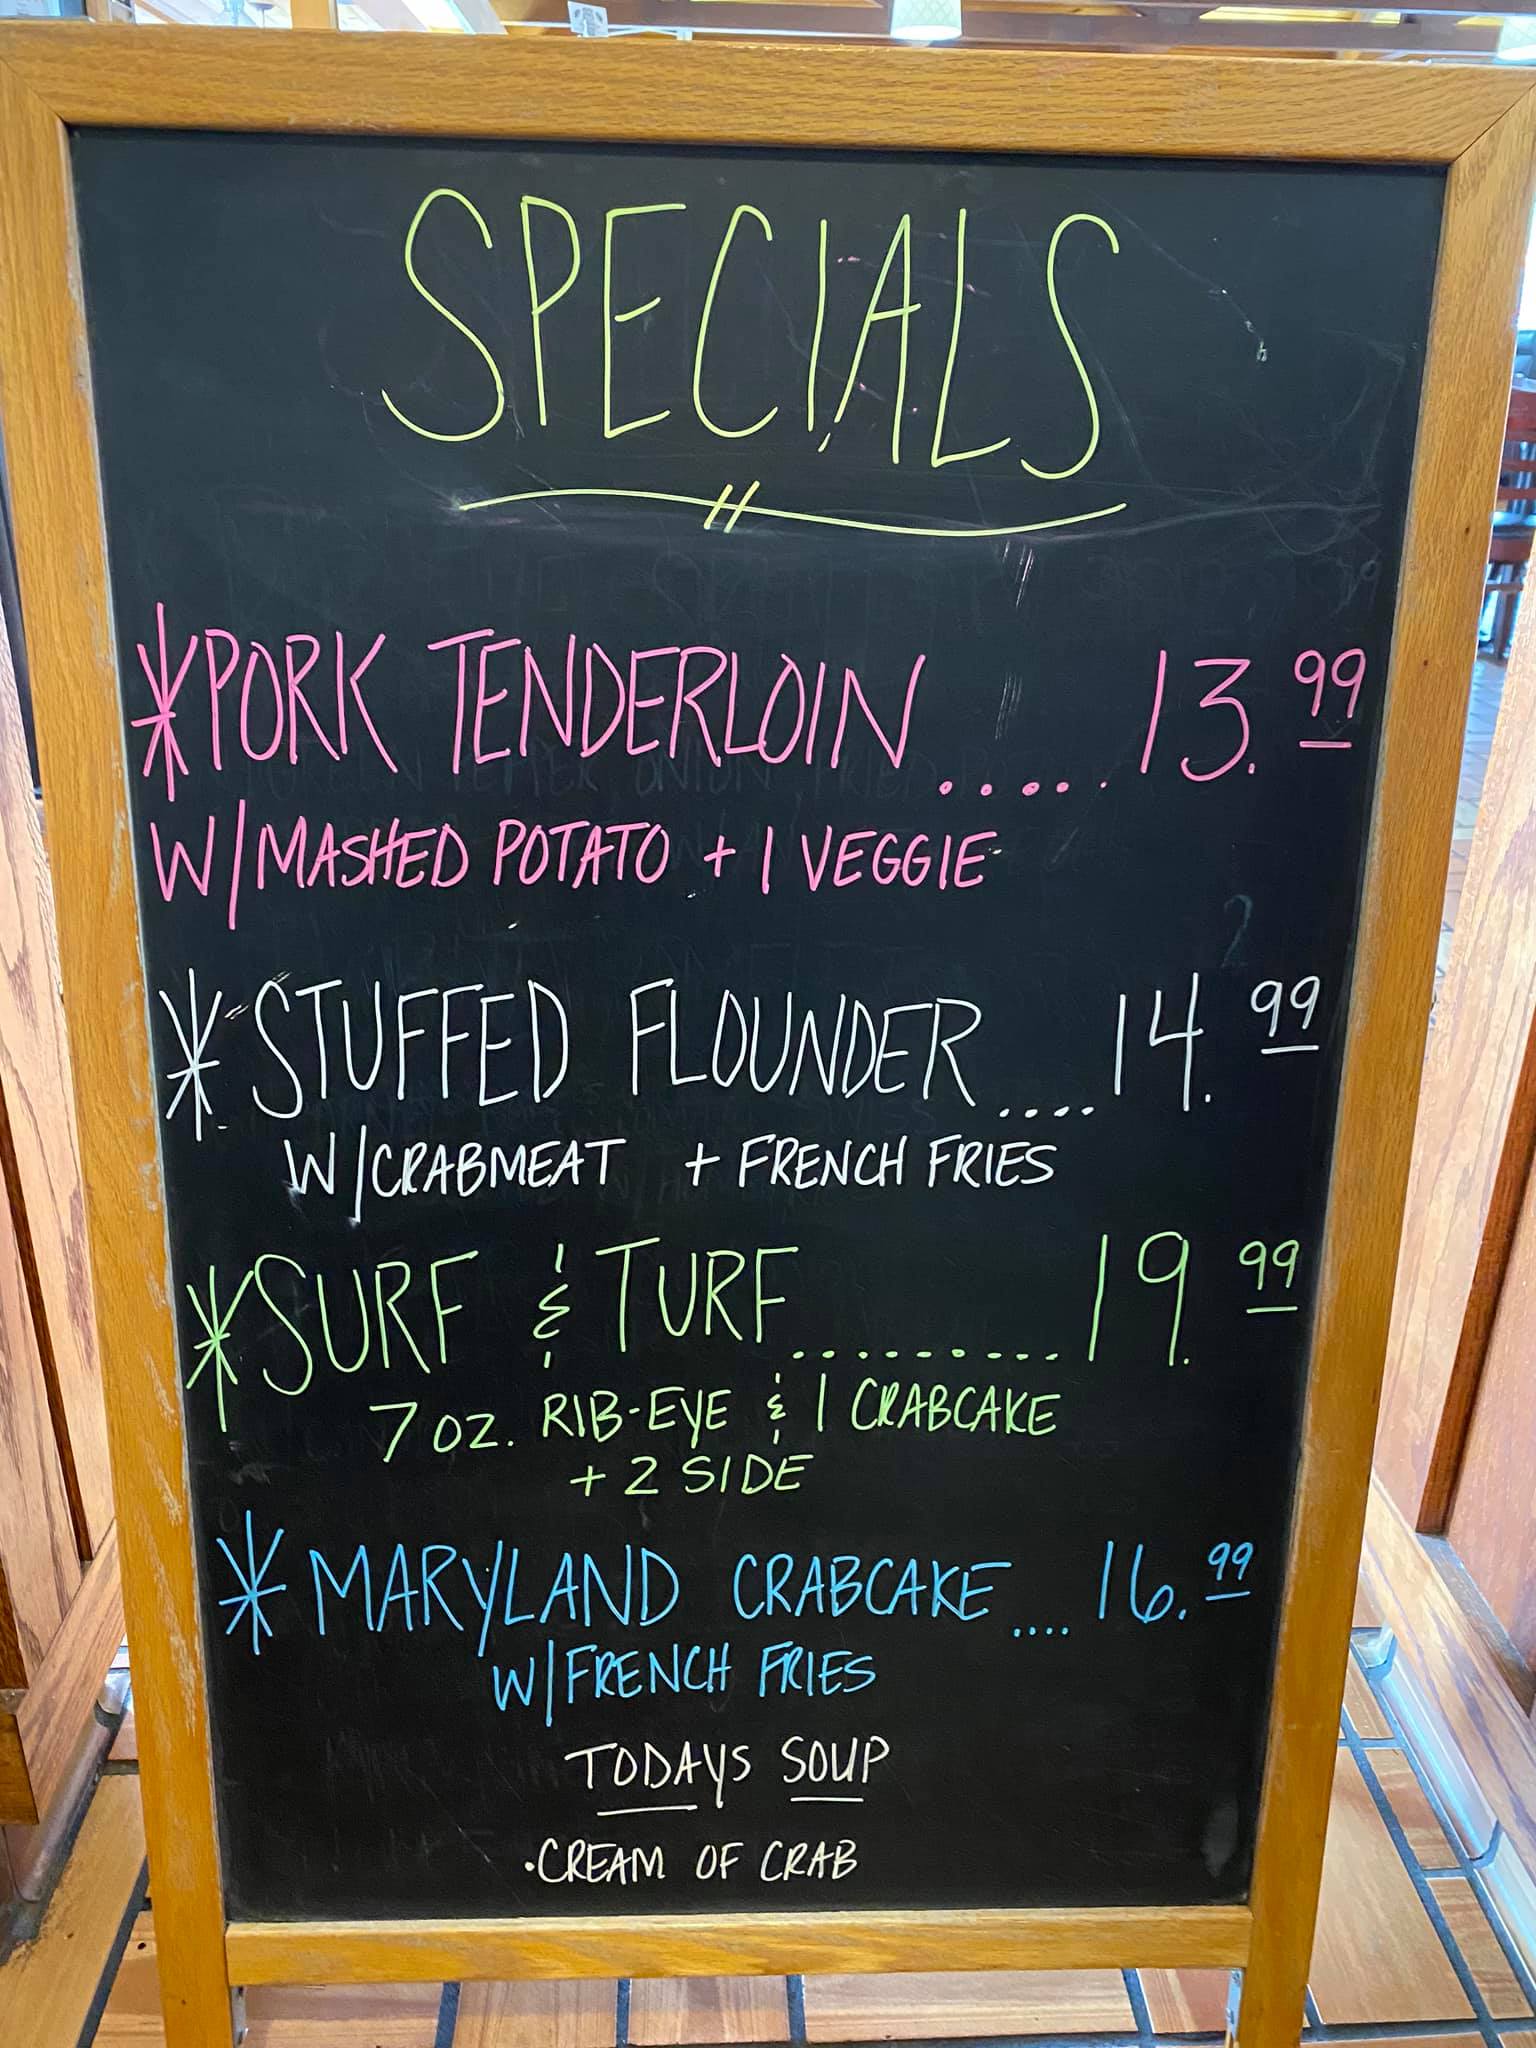 SPECIALS
*PORK TENDERLOIN.....13.99
W/MASHED POTATO + 1 VEGGIE
*STUFFED FLOUNDER....14.99
W/CRABMEAT + FRENCH FRIES
*SURF & TURF.........19.99
7 OZ. RIB-EYE & 1 CRABCAKE
+ 2 SIDE
*MARYLAND CRABCAKE....16.99
W/FRENCH FRIES
TODAYS SOUP
•CREAM OF CRAB